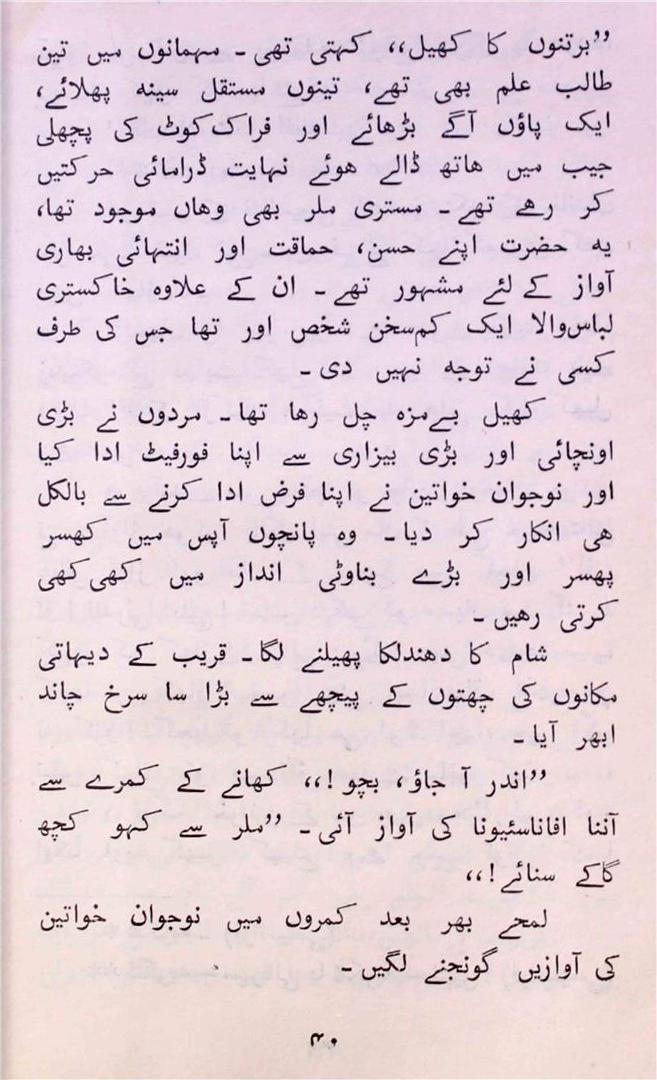 ”برتنوں کا کھیل،، کہتی تھی ۔ مہمانوں میں تین
طالب علم بھی تھے، تینوں مستقل سینہ پھلائے،
ایک پاؤں آگے بڑھائے اور فراک کوٹ کی پچھلی
جیب میں ھاتھ ڈالے ھوئے نہایت ڈرامائی حرکتیں
کر رھے تھے ۔ مستری ملر بھی وھاں موجود تھا،
یہ حضرت اپنے حسن، حماقت اور انتہائی بھاری
آواز کے لئے مشہور تھے ۔ ان کے علاوہ خاکستری
لباس والا ایک کم سخن شخص اور تھا جس کی طرف
کسی نے توجہ نہیں دی ۔
کھیل بے مزہ چل رھا تھا ۔ مردوں نے بڑی
اونچائی اور بڑی بیزاری سے اپنا فورفیٹ ادا کیا
اور نوجوان خواتین نے اپنا فرض ادا کرنے سے بالکل
ھی انکار کر دیا ۔ وہ پانچوں آپس میں کھسر
پھسر اور بڑے بناوٹی انداز میں کھی کھی
کرتی رھیں ۔
شام کا دھندلکا پھیلنے لگا ۔ قریب کے دیہاتی
مکانوں کی چھتوں کے پیچھے سے بڑا سا سرخ چاند
ابھر آیا ۔
”اندر آ جاؤ، بچو !،، کھانے کے کمرے سے
آننا افاناسئیونا کی آواز آئی ۔ ”ملر سے کہو کچھ
گاکے سنائے !،،
لمحے بھر بعد کمروں میں نوجوان خواتین
کی آوازیں گونجنے لگیں ۔